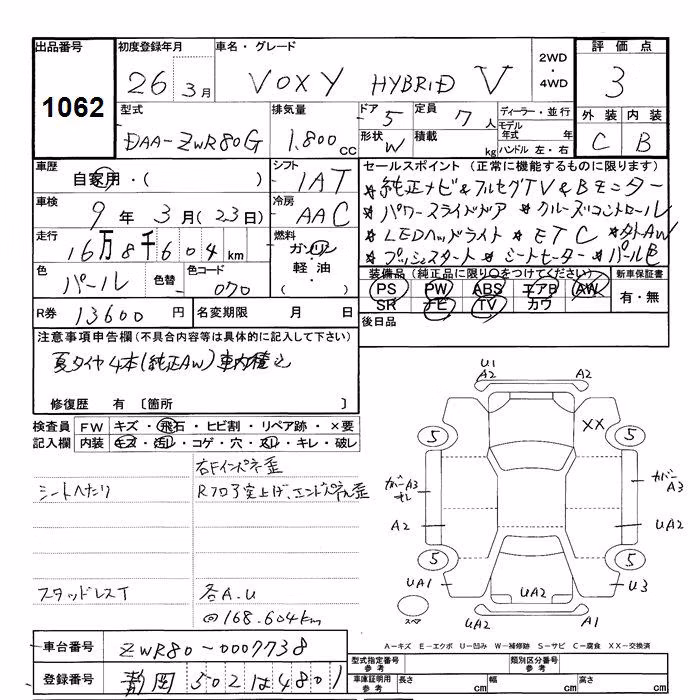 出品番号 初度登録年月 車名・グレード 2WD・4WD 評価点
1062 26 3月 VOXY HYBRID V 3
型式 排気量 ドア 5 定員 7人 ディーラー・並行 外装 内装
DAA-ZWR80G 1.800cc 形状 W 積載 kg モデル年式 年 ハンドル 左・右 C B
車歴 自家用・( ) シフト IAT セールスポイント (正常に機能するものに限ります)
車検 9年 3月(23日) 冷房 AAC
＊純正ナビ&フルセグTV&Bモニター
＊パワースライドドア ＊クルーズコントロール
走行 16万8千604km 燃料 ガソリン・軽油・
＊LEDヘッドライト ＊ETC ＊社外AW
＊プッシュスタート ＊シートヒーター ＊パールB
色 パール 色替 色コード 070
装備品(純正品に限り○をつけてください) 新車保証書
PS PW ABS エアB AW 有・無
SR ナビ TV カワ
R券 13600円 名変期限 月 日
後日品
注意事項申告欄(不具合内容等は具体的に記入して下さい)
夏タイヤ4本(純正AW)車内積込
修復歴 有 〔箇所 〕
検査員 FW キズ・飛石・ヒビ割・リペア跡・×要
記入欄 内装 キズ・汚れ・コゲ・穴・スレ・キレ・破レ
右Fインパネ歪
シートへたり Rフロア突上げ、エンドパネル歪
スタッドレスT 各A.U
@168.604km
U1
A2 A2
XX
5 5
カバーA3 カバーA3
A2 UA2
5 5
UA1 UA2 U3
スペア UA2 A1
A－キズ E－エクボ U－凹み W－補修跡 S－サビ C－腐食 XX－交換済
車台番号 ZWR80-0007738 型式指定番号 参考 類別区分番号 参考
登録番号 静岡 502 は 4801 車庫証明用 参考 長さ cm 幅 cm 高さ cm